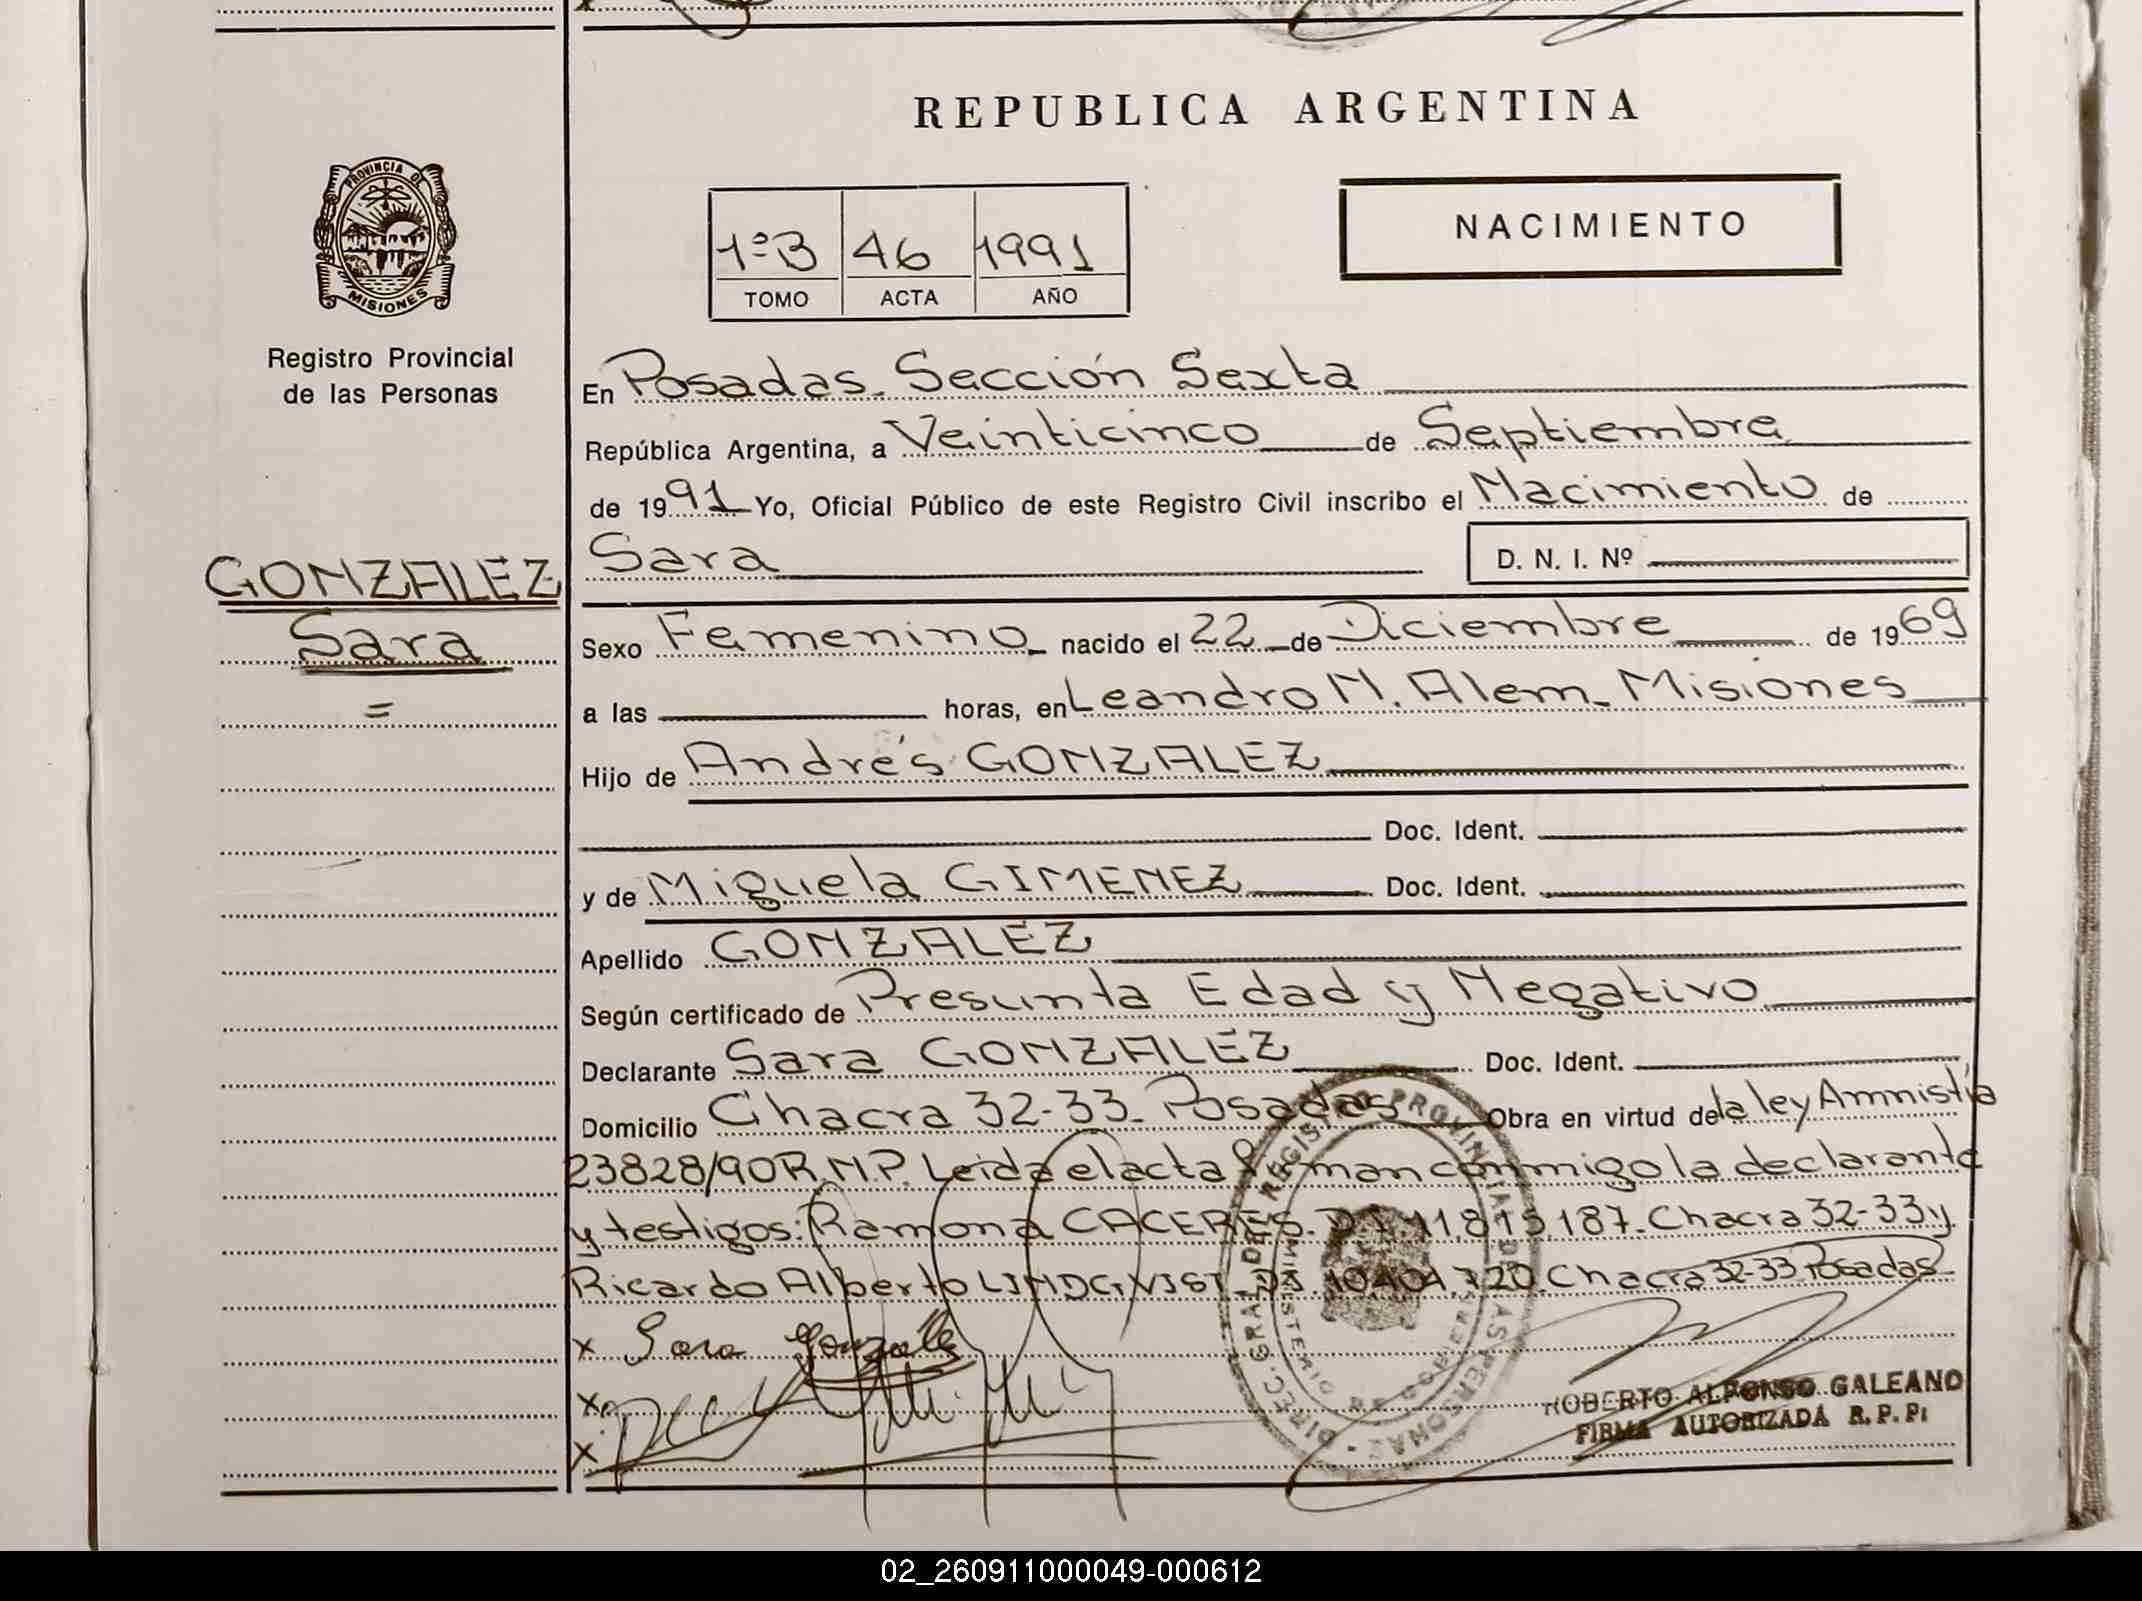 REPUBLICA ARGENTINA
PROVINCIA DE
MISIONES
Registro Provincial
de las Personas
GONZALEZ
Sara
=
1ºB 46 1991
TOMO ACTA AÑO
NACIMIENTO
En Posadas. Sección Sexta
República Argentina, a Veinticinco de Septiembre
de 1991 Yo, Oficial Público de este Registro Civil inscribo el Nacimiento de
Sara D. N. I. Nº
Sexo Femenino nacido el 22 de Diciembre de 1969
a las horas, en Leandro N. Alem. Misiones
Hijo de Andrés GONZALEZ
Doc. Ident.
y de Miguela GIMENEZ Doc. Ident.
Apellido GONZALEZ
Según certificado de Presunta Edad y Negativo
Declarante Sara GONZALEZ Doc. Ident.
Domicilio Chacra 32-33. Posadas Obra en virtud de la ley Amnistía
23828/90 R.N.P. Leída el acta firman conmigo la declarante
y testigos: Ramona CACERES. D.I. 11.815.187. Chacra 32-33 y
Ricardo Alberto LINDGVIST. DI. 10.401.720. Chacra 32-33 Posadas
x Sara Gonzalez
x
x
DIREC. GRAL. DEL REGISTRO PROVINCIAL DE LAS PERSONAS
MINISTERIO DE GOBIERNO
ROBERTO ALFONSO GALEANO
FIRMA AUTORIZADA R. P. P.
02_260911000049-000612